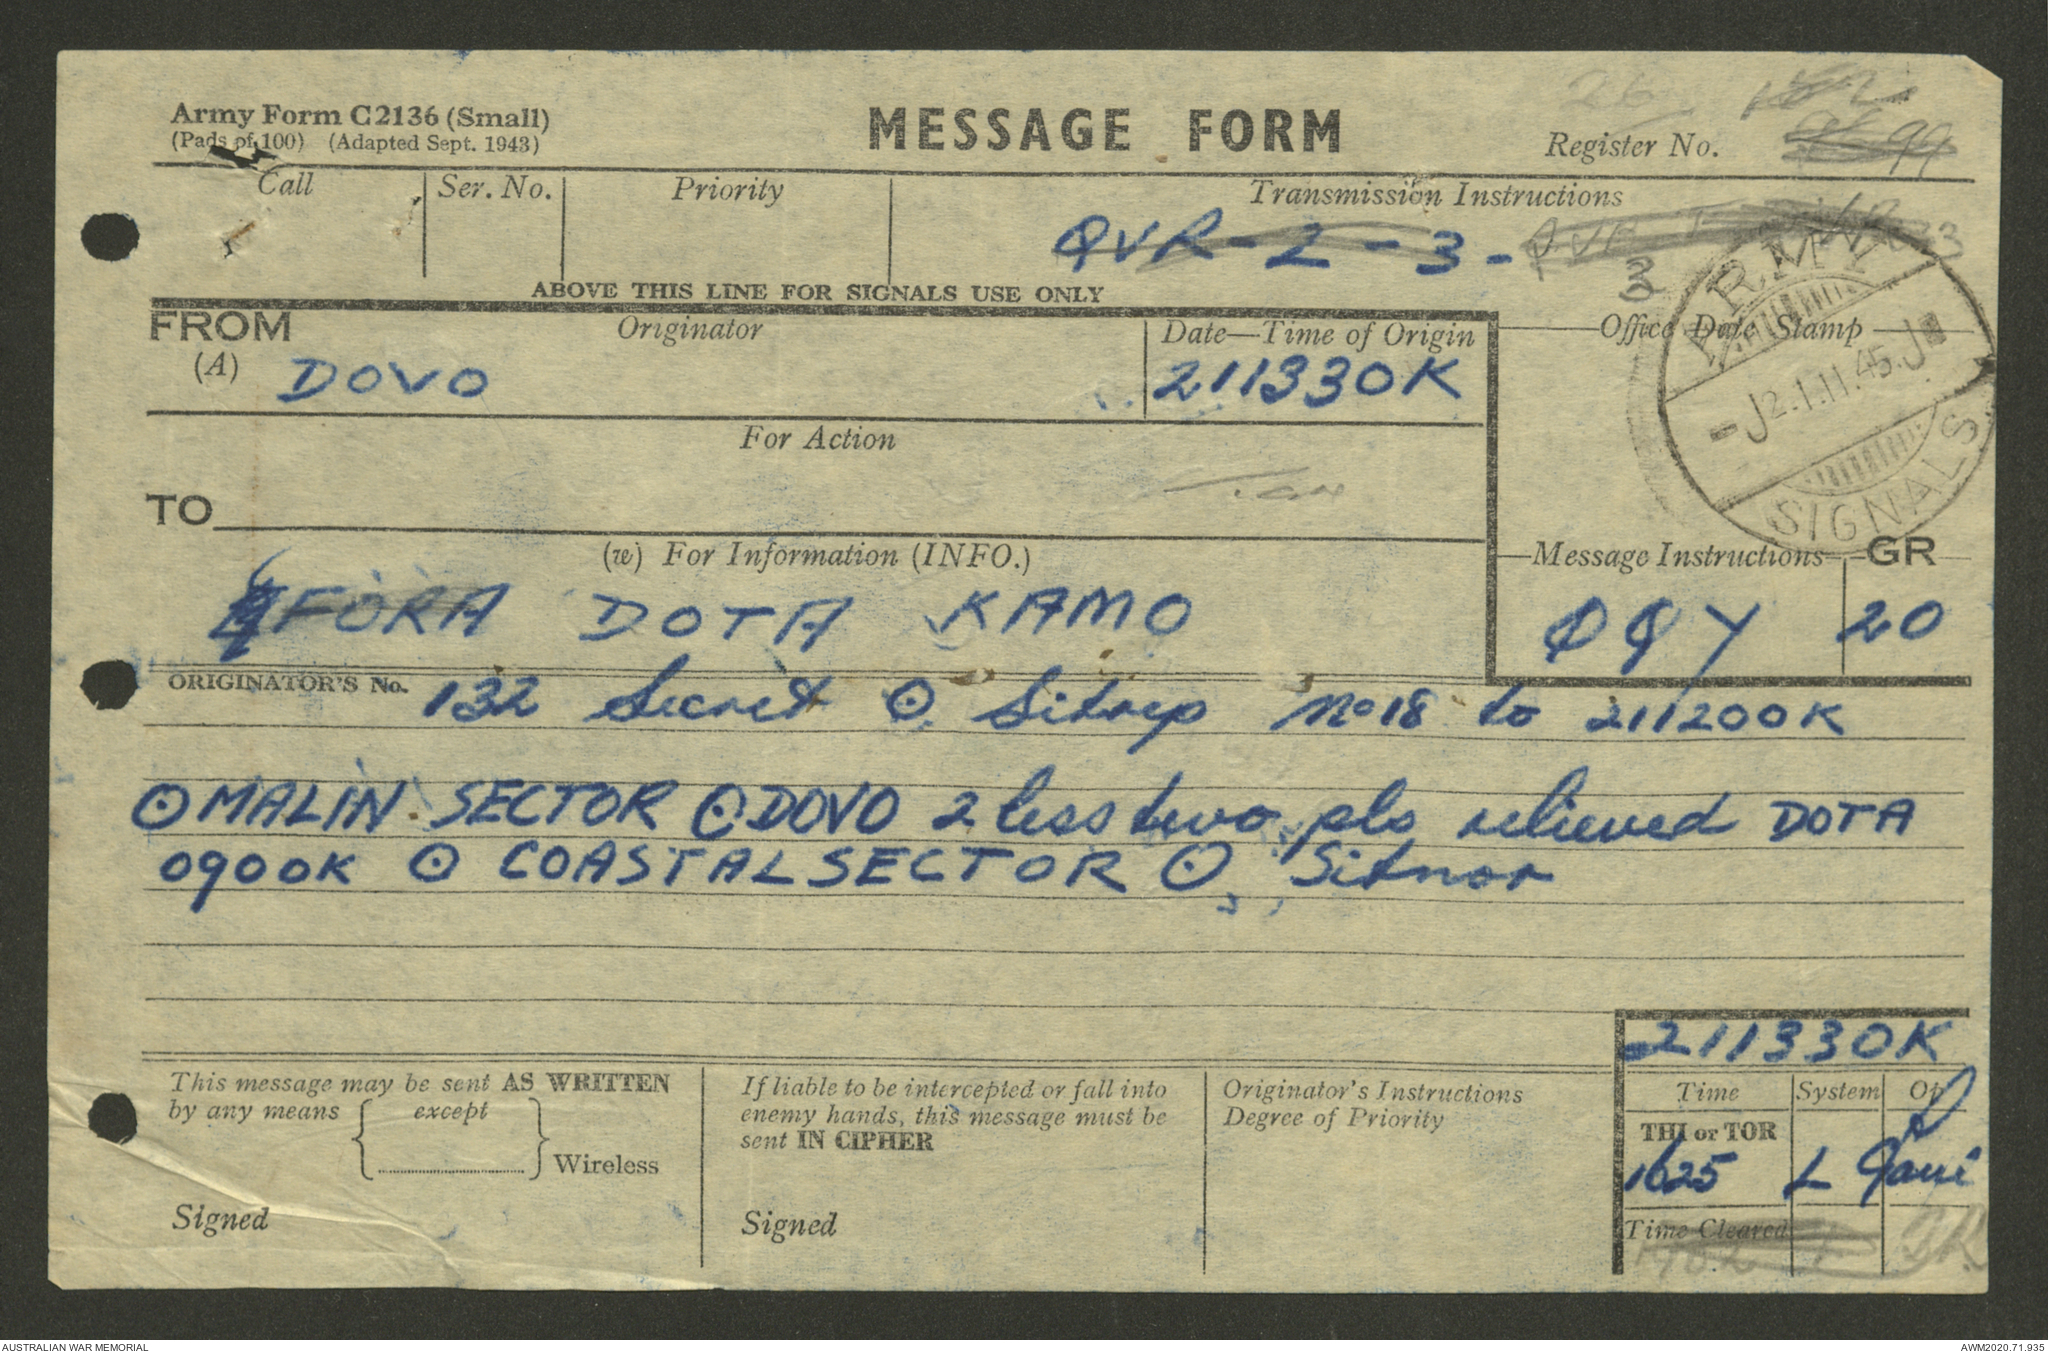 Army Form C2136 (Small)
(Pads of 100) (Adapted Sept. 1943)
MESSAGE FORM
Register No. 99
Call
Ser. No.
Priority
Transmission Instructions
QVR-2-3-
ABOVE THIS LINE FOR SIGNALS USE ONLY
FROM
(A)
Originator
DOVO
Date—Time of Origin
211330K
Office Date Stamp
ARMY
21.11.45
SIGNALS
For Action
TO
(w) For Information (INFO.)
FORA DOTA KAMO
Message Instructions
QQY
GR
20
ORIGINATOR'S No. 132 Secret ⊙ Sitrep No 18 to 211200K
⊙ MALIN SECTOR ⊙ DOVO 2 less two pls relieved DOTA
0900K ⊙ COASTAL SECTOR ⊙ Sitnor
211330K
This message may be sent AS WRITTEN
by any means { except } Wireless
Signed
If liable to be intercepted or fall into
enemy hands, this message must be
sent IN CIPHER
Signed
Originator's Instructions
Degree of Priority
Time System Op
THI or TOR
1625 L
Time Cleared
AUSTRALIAN WAR MEMORIAL
AWM2020.71.935